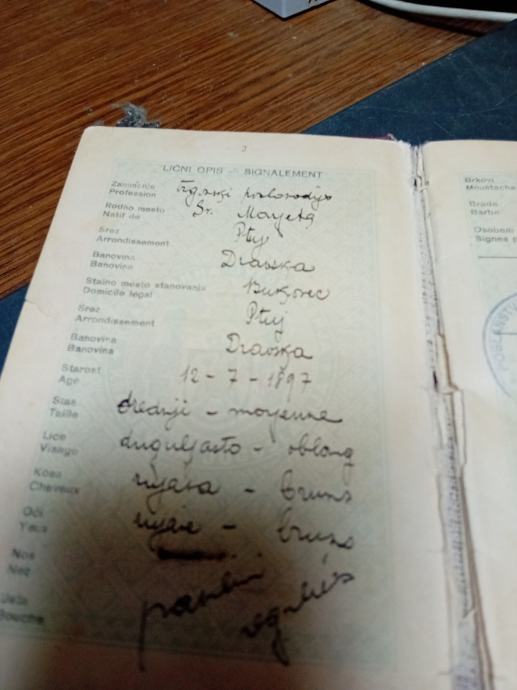 2
LIČNI OPIS – SIGNALEMENT
Zanimanje
Profession
Rodno mesto Sv. Marjeta
Natif de
Srez Ptuj
Arrondissement
Banovina Dravska
Banovina
Stalno mesto stanovanja Bukovec
Domicile légal
Srez Ptuj
Arrondissement
Banovina Dravska
Banovina
Starost 12-7-1897
Age
Stas srednji - moyenne
Taille
Lice duguljasto - oblong
Visage
Kosa smeđa - bruns
Cheveux
Oči smeđe - bruns
Yeux
Nos
Nez
Usta
Bouche
Brkovi
Moustache
Brada
Barbe
Osobeni
Signes